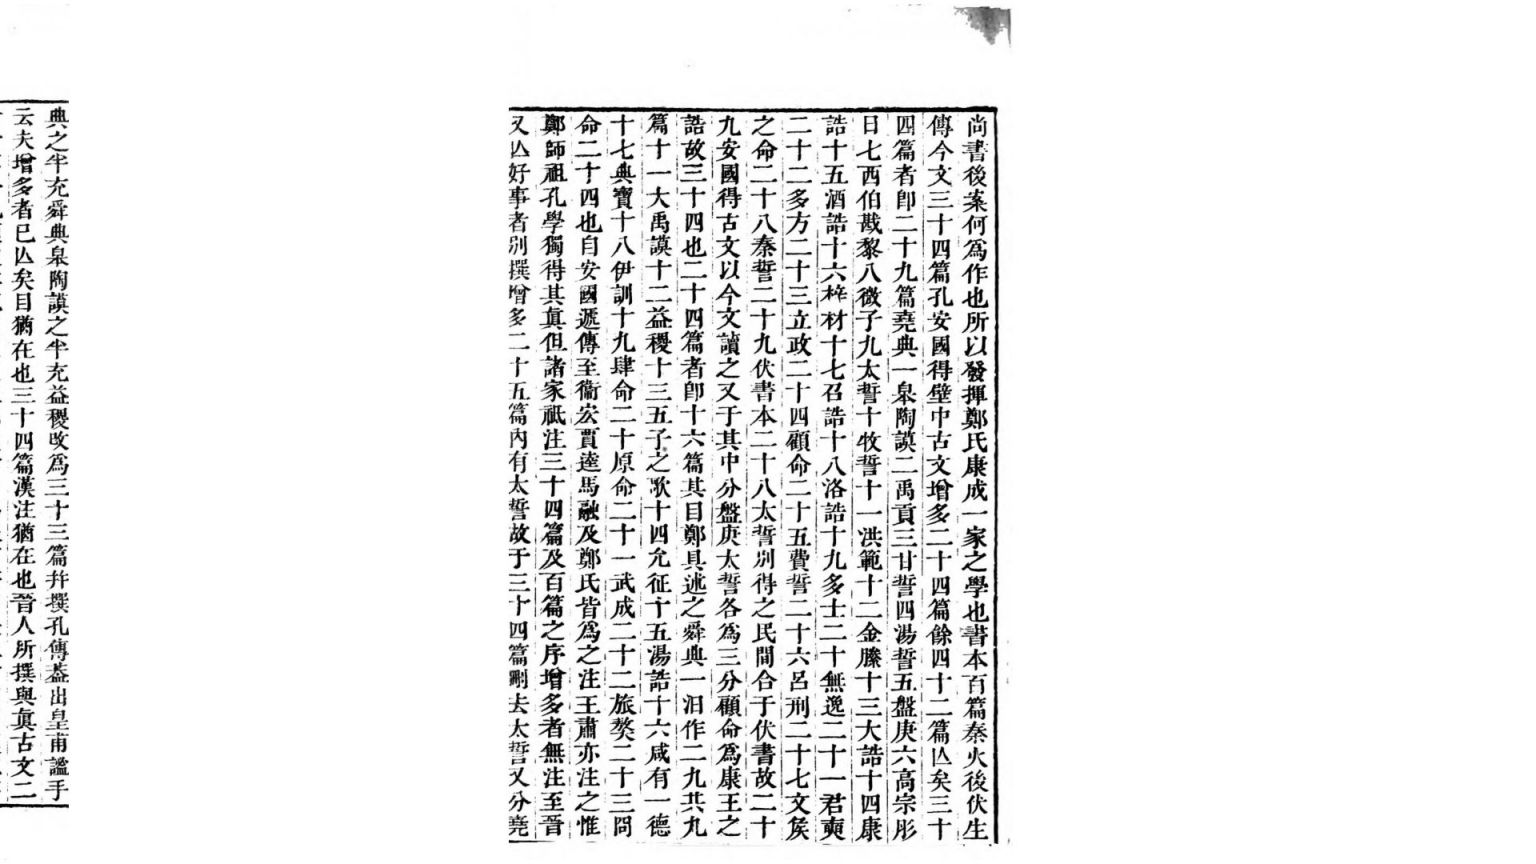 尚書後案何爲作也所以發揮鄭氏康成一家之學也書本百篇秦火後伏生
傳今文三十四篇孔安國得壁中古文增多二十四篇餘四十二篇亾矣三十
四篇者卽二十九篇堯典一皋陶謨二禹貢三甘誓四湯誓五盤庚六高宗肜
日七西伯戡黎八微子九太誓十牧誓十一洪範十二金縢十三大誥十四康
誥十五酒誥十六梓材十七召誥十八洛誥十九多士二十無逸二十一君奭
二十二多方二十三立政二十四顧命二十五費誓二十六呂刑二十七文侯
之命二十八秦誓二十九伏書本二十八太誓別得之民間合于伏書故二十
九安國得古文以今文讀之又于其中分盤庚太誓各爲三分顧命爲康王之
誥故三十四也二十四篇者卽十六篇其目鄭具述之舜典一汩作二九共九
篇十一大禹謨十二益稷十三五子之歌十四允征十五湯誥十六咸有一德
十七典寶十八伊訓十九肆命二十原命二十一武成二十二旅獒二十三冏
命二十四也自安國遞傳至衞宏賈逵馬融及鄭氏皆爲之注王肅亦注之惟
鄭師祖孔學獨得其眞但諸家祇注三十四篇及百篇之序增多者無注至晉
又亾好事者別撰增多二十五篇內有太誓故于三十四篇刪去太誓又分堯
典之半充舜典皋陶謨之半充益稷改爲三十三篇幷撰孔傳葢出皇甫謐手
云夫增多者已亾矣目猶在也三十四篇漢注猶在也晉人所撰與眞古文二